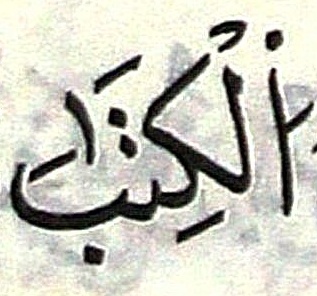 اَ۬لْكِتَٰبَ